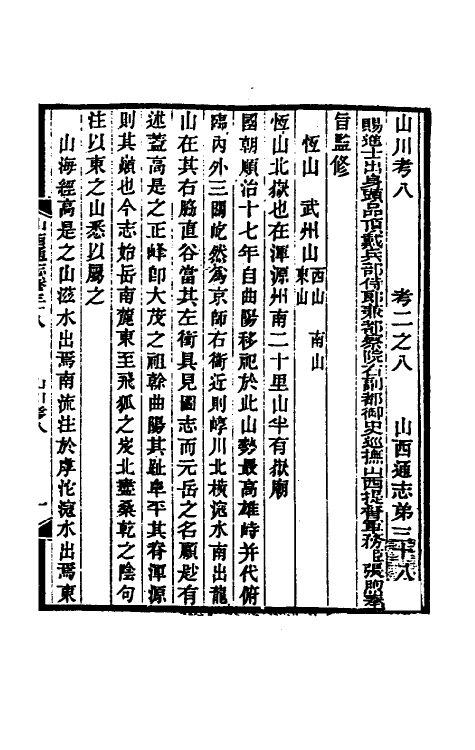 山川考八　考二之八　山西通志第三十八
賜進士出身頭品頂戴兵部侍郎兼都察院右副都御史巡撫山西提督軍務張煦奉
旨監修
恆山　武州山　西山　東山　南山
恆山北嶽也在渾源州南二十里山半有嶽廟
國朝順治十七年自曲陽移祀於此山勢最高雄峙并代俯
臨內外三關屹然為京師右衛近則崞川北橫滱水南出龍
山在其右脇直谷當其左衛具見圖志而元岳之名顧尠有
述蓋高是之正峰卽大茂之祖幹曲陽其趾阜平其脊渾源
則其巔也今志始岳南麓東至飛狐之岌北盡桑乾之陰句
注以東之山悉以屬之
山海經高是之山滋水出焉南流注於虖佗滱水出焉東
山西通志卷三十八　山川考八　一